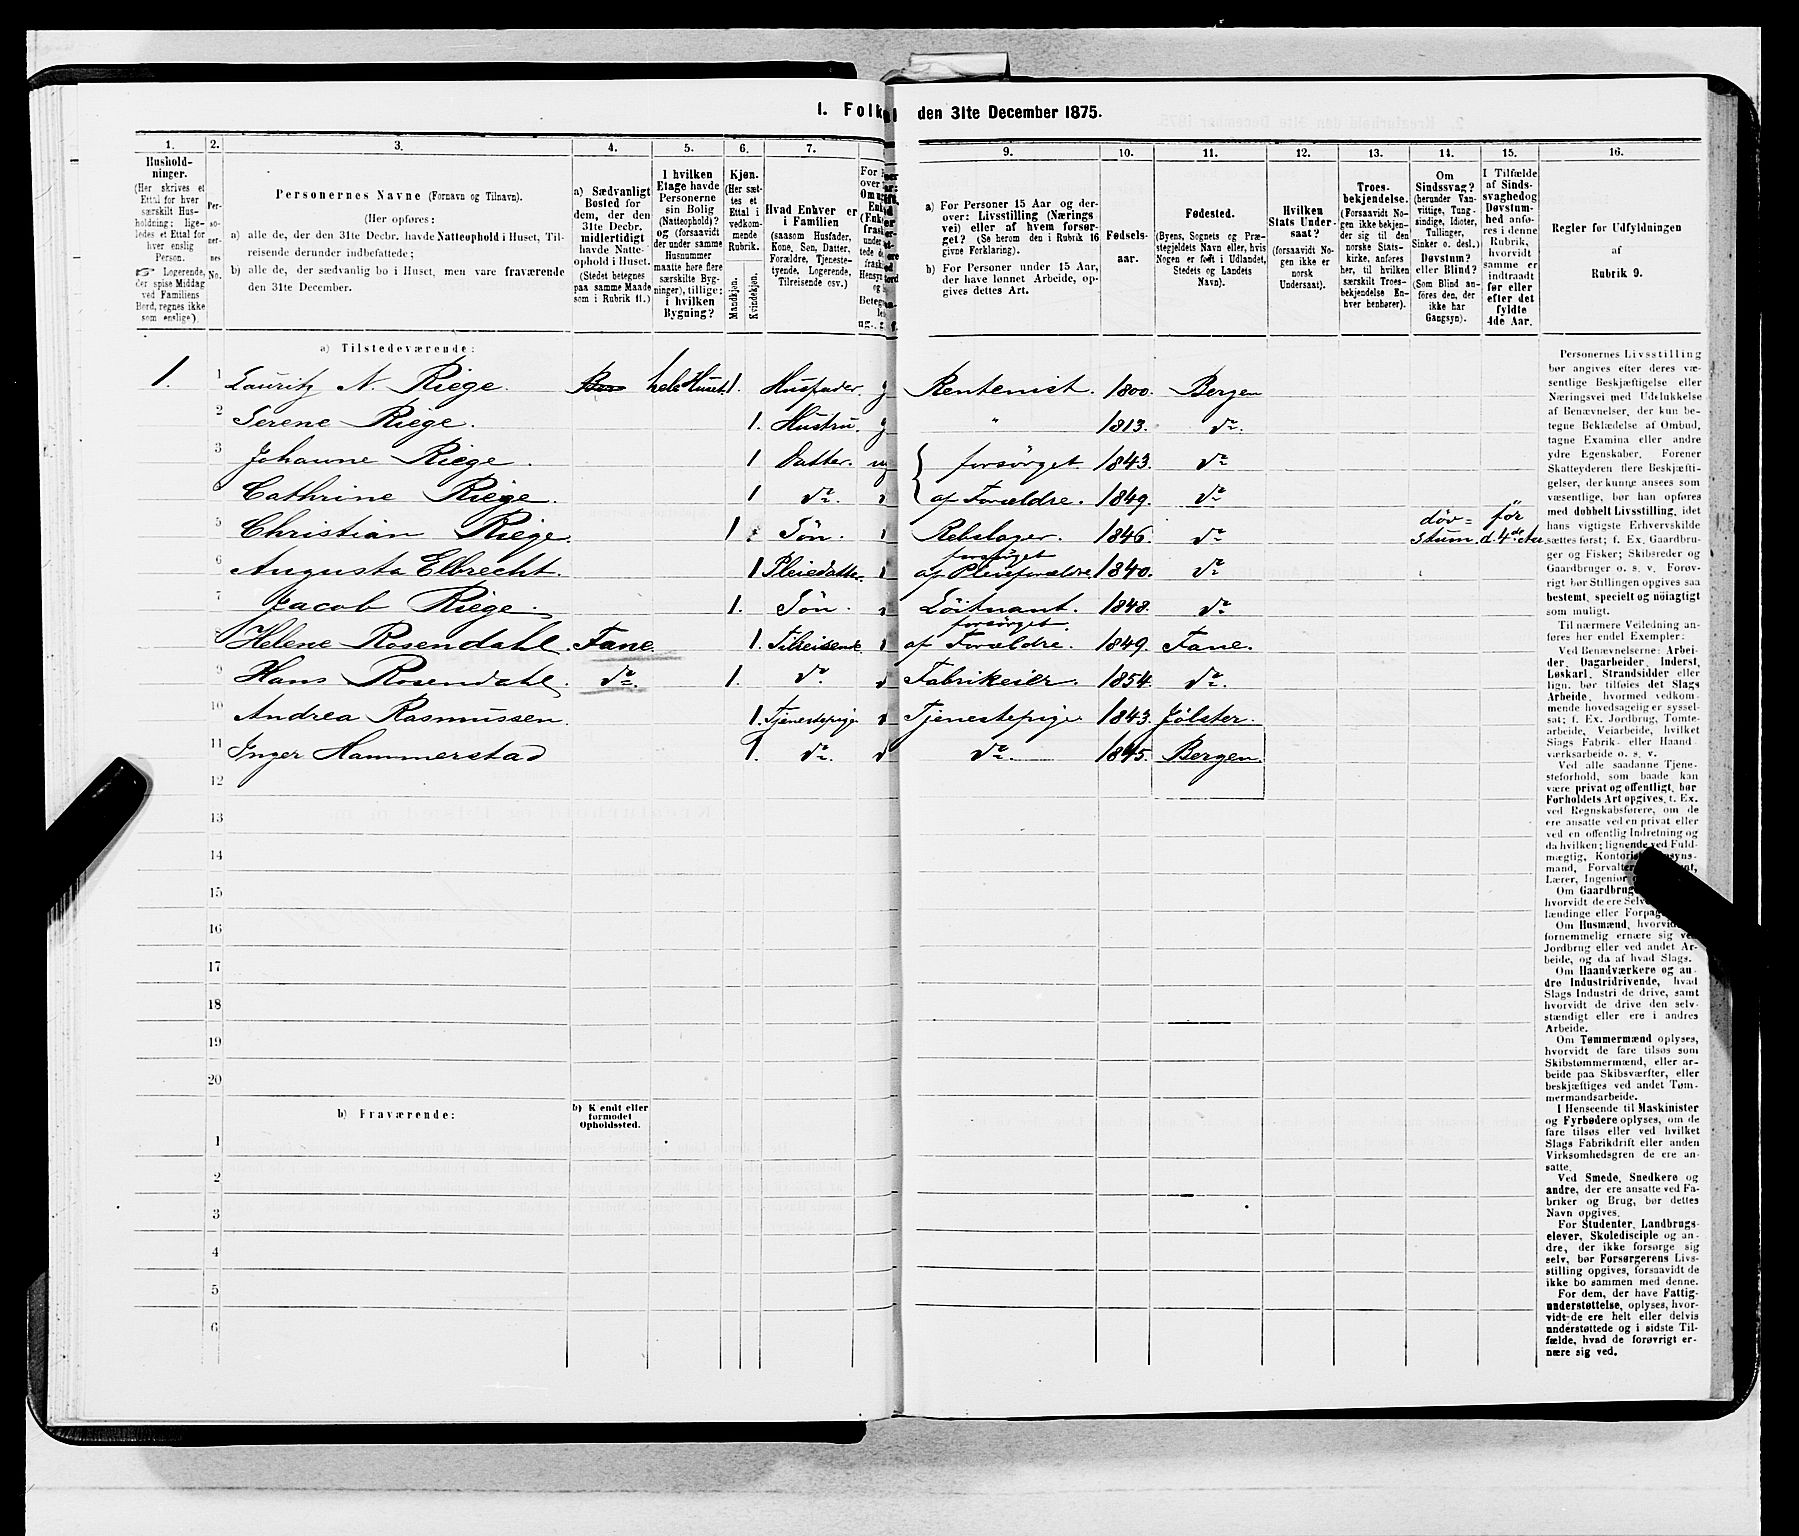 1. Folk
den 31te December 1875.
1. 2. 3. 4. 5. 6. 7. 9. 10. 11. 12. 13. 14. 15. 16.
Hushold-
ninger.
(Her skrives et
Ettal for hver
særskilt Hus-
holdning; lige-
ledes et Ettal for
hver enslig
Person.
☞ Logerende,
der spise Middag
ved Familiens
Bord, regnes ikke
som enslige).
Per-
so-
ner-
nes
No.
Personernes Navne (Fornavn og Tilnavn).
(Her opføres:
a) alle de, der den 31te Decbr. havde Natteophold i Huset, Til-
reisende derunder indbefattede;
b) alle de, der sædvanlig bo i Huset, men vare fraværende
den 31te December.
a) Sædvanligt
Bosted for
dem, der den
31te Decbr.
midlertidigt
havde Natte-
ophold i Huset.
(Stedet betegnes
paa samme Maade
som i Rubrik 11.)
I hvilken
Etage havde
Personerne
sin Bolig
(Natteophold)?
og (forsaavidt
der under samme
Husnummer
maatte høre flere
særskilte Byg-
ninger), tillige:
i hvilken
Bygning?
Kjøn.
(Her sæt-
tes et
Ettal i
vedkom-
mende
Rubrik.
Mandkjøn.
Kvindekjøn.
Hvad Enhver er
i Familien
(saasom Husfader,
Kone, Søn, Datter,
Forældre, Tjeneste-
tyende, Logerende,
Tilreisende osv.)
a) For Personer 15 Aar og der-
over: Livsstilling (Nærings
vei) eller af hvem forsør-
get? (Se herom den i Rubrik 16
givne Forklaring).
b) For Personer under 15 Aar,
der have lønnet Arbeide, op-
gives dettes Art.
Fødsels-
aar.
Fødested.
(Byens, Sognets og Præ-
stegjeldets Navn eller, hvis
Nogen er født i Udlandet,
Stedets og Landets
Navn).
Hvilken
Stats Under-
saat?
(forsaavidt No-
gen ikke er
norsk
Undersaat).
Troes-
bekjendelse.
(Forsaavidt No-
gen ikke bekjen-
der sig til den
norske Stats-
kirke, anføres
her, til hvilken
særskilt Troes-
bekjendelse En-
hver henhører).
Om
Sindssvag?
(herunder Van-
vittige, Tung-
sindige, Idioter,
Tullinger,
Sinker o. desl.)
Døvstum?
eller Blind?
(Som Blind an-
føres den, der
ikke har
Gangsyn).
I Tilfælde
af Sinds-
svaghedog
Døvstum-
hed anfø-
res i denne
Rubrik,
hvorvidt
samme er
indtraadt
før eller
efter det
fyldte
4de Aar.
Regler for Udfyldningen
af
Rubrik 9.
a) Tilstedeværende:
1. 1 Lauritz N. Riege. hele Huset. 1. Husfader. g Rentenist. 1800. Bergen
2 Serene Riege. 1. Hustru. g " 1813. do.
3 Johanne Riege. 1 Datter. ug forsörget 1843. do
4 Cathrine Riege. 1 do. af Forældre. 1849. do
5 Christian Riege. 1 Sön. Rebslager. 1846. do döv=stum. för d. 4de Aar.
6 Augusta Elbrecht. 1 Pleiedatter. forsörget af Pleieforældre. 1840. do
7 Jacob Riege. 1. Sön. Löitnant. 1848. do
8 Helene Rosendahl. Fane. 1. Tilreisende. forsörget af Forældre. 1849. Fane.
9 Hans Rosendahl. do. 1. do. Fabrikeier. 1854. do.
10 Andrea Rasmussen. 1. Tjenestepige Tjenestepige 1843. Jølster.
11 Inger Hammerstad 1. do. do. 1845. Bergen.
12
13
14
15
16
17
18
19
20
b) Fraværende:
b) Kjendt eller
formodet
Opholdssted.
1
2
3
4
5
6
Personernes Livsstilling
bør angives efter deres væ-
sentlige Beskjæftigelse eller
Næringsvei med Udelukkelse
af Benævnelser, der kun be-
tegne Beklædelse af Ombud,
tagne Examina eller andre
ydre Egenskaber. Forener
Skatteyderen flere Beskjæfti-
gelser, der kunne ansees som
væsentlige, bør han opføres
med dobbelt Livsstilling, idet
hans vigtigste Erhvervskilde
sættes først; f. Ex. Gaardbru-
ger og Fisker; Skibsreder og
Gaardbruger o. s. v. Forøv-
rigt bør Stillingen opgives saa
bestemt, specielt og nöiagtigt
som muligt.
Til nærmere Veiledning an-
føres her endel Exempler:
Ved Benævnelserne: Arbei-
der, Dagarbeider, Inderst,
Løskarl, Strandsidder eller
lign. bør tilføies det Slags
Arbeide, hvormed vedkom-
mende hovedsagelig er syssel-
sat; f. Ex. Jordbrug, Tomte-
arbeide, Veiarbeide, hvilket
Slags Fabrik- eller Haand-
værksarbeide o. s. v.
Ved alle saadanne Tjene-
steforhold, som baade kan
være privat og offentligt, bør
Forholdets Art opgives, t. Ex.
ved Regnskabsførere, om de
ere ansatte ved en privat eller
ved en offentlig Indretning og
da hvilken; lignende ved Fuld-
mægtig, Kontorist,
mand, Forvalter,
Lærer, Ingeniør
Om Gaardbrug
hvorvidt de ere Selv
lændinge eller Forpag
Om Husmænd, hvorvidt
fornemmelig ernære sig ved
Jordbrug eller ved andet Ar-
beide, og da af hvad Slags.
Om Haandværkere og an-
dre Industridrivende, hvad
Slags Industri de drive, samt
hvorvidt de drive den selv-
stændigt eller ere i andres
Arbeide.
Om Tømmermænd oplyses,
hvorvidt de fare tilsøs som
Skibstømmermænd, eller ar-
beide paa Skibsværfter, eller
beskjæftiges ved andet Tøm-
mermandsarbeide.
I Henseende til Maskinister
og Fyrbødere oplyses, om de
fare tilsøs eller ved hvilket
Slags Fabrikdrift eller anden
Virksomhedsgren de ere an-
satte.
Ved Smede, Snedkere og
andre, der ere ansatte ved Fa-
briker og Brug, bør dettes
Navn opgives.
For Studenter, Landbrugs-
elever, Skoledisciple og an-
dre, der ikke forsørge sig
selv, bør Forsørgerens Livs-
stilling opgives, forsaavidt de
ikke bo sammen med denne.
For dem, der have Fattig-
understøttelse, oplyses, hvor-
vidt de ere helt eller delvis
understøttede og i sidste Til-
fælde, hvad de forøvrigt er-
nære sig ved.